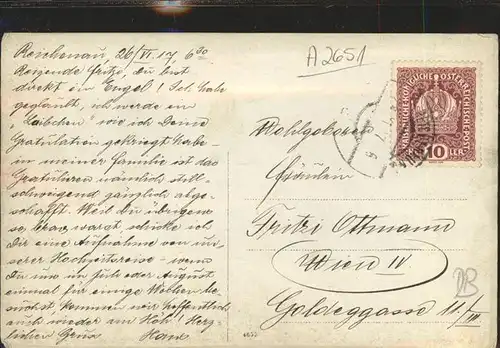 Reichenau, 26/VI.17, 6³⁰
Reizende Fritzi, Du bist
direkt ein Engel! Ich hab
geglaubt, ich werde ein
wie ich Deine
Gratulation gekriegt habe
in meiner Familie ist das
Gratulieren nämlich still-
schweigend gänzlich abge-
schafft. Weil Du übrigens
so brav warst, schicke ich
Dir eine Aufnahme von un-
serer Hochzeitsreise - wenn
Du uns im Juli oder August
einmal für einige Wochen be-
suchst, kommen wir hoffentlich
auch wieder am Höh! Herz-
lichen Gruss Hans
A2651
Wohlgeboren
Fräulein
Fritzi Ottmann
Wien IV.
Goldeggasse 11/III
10
4633